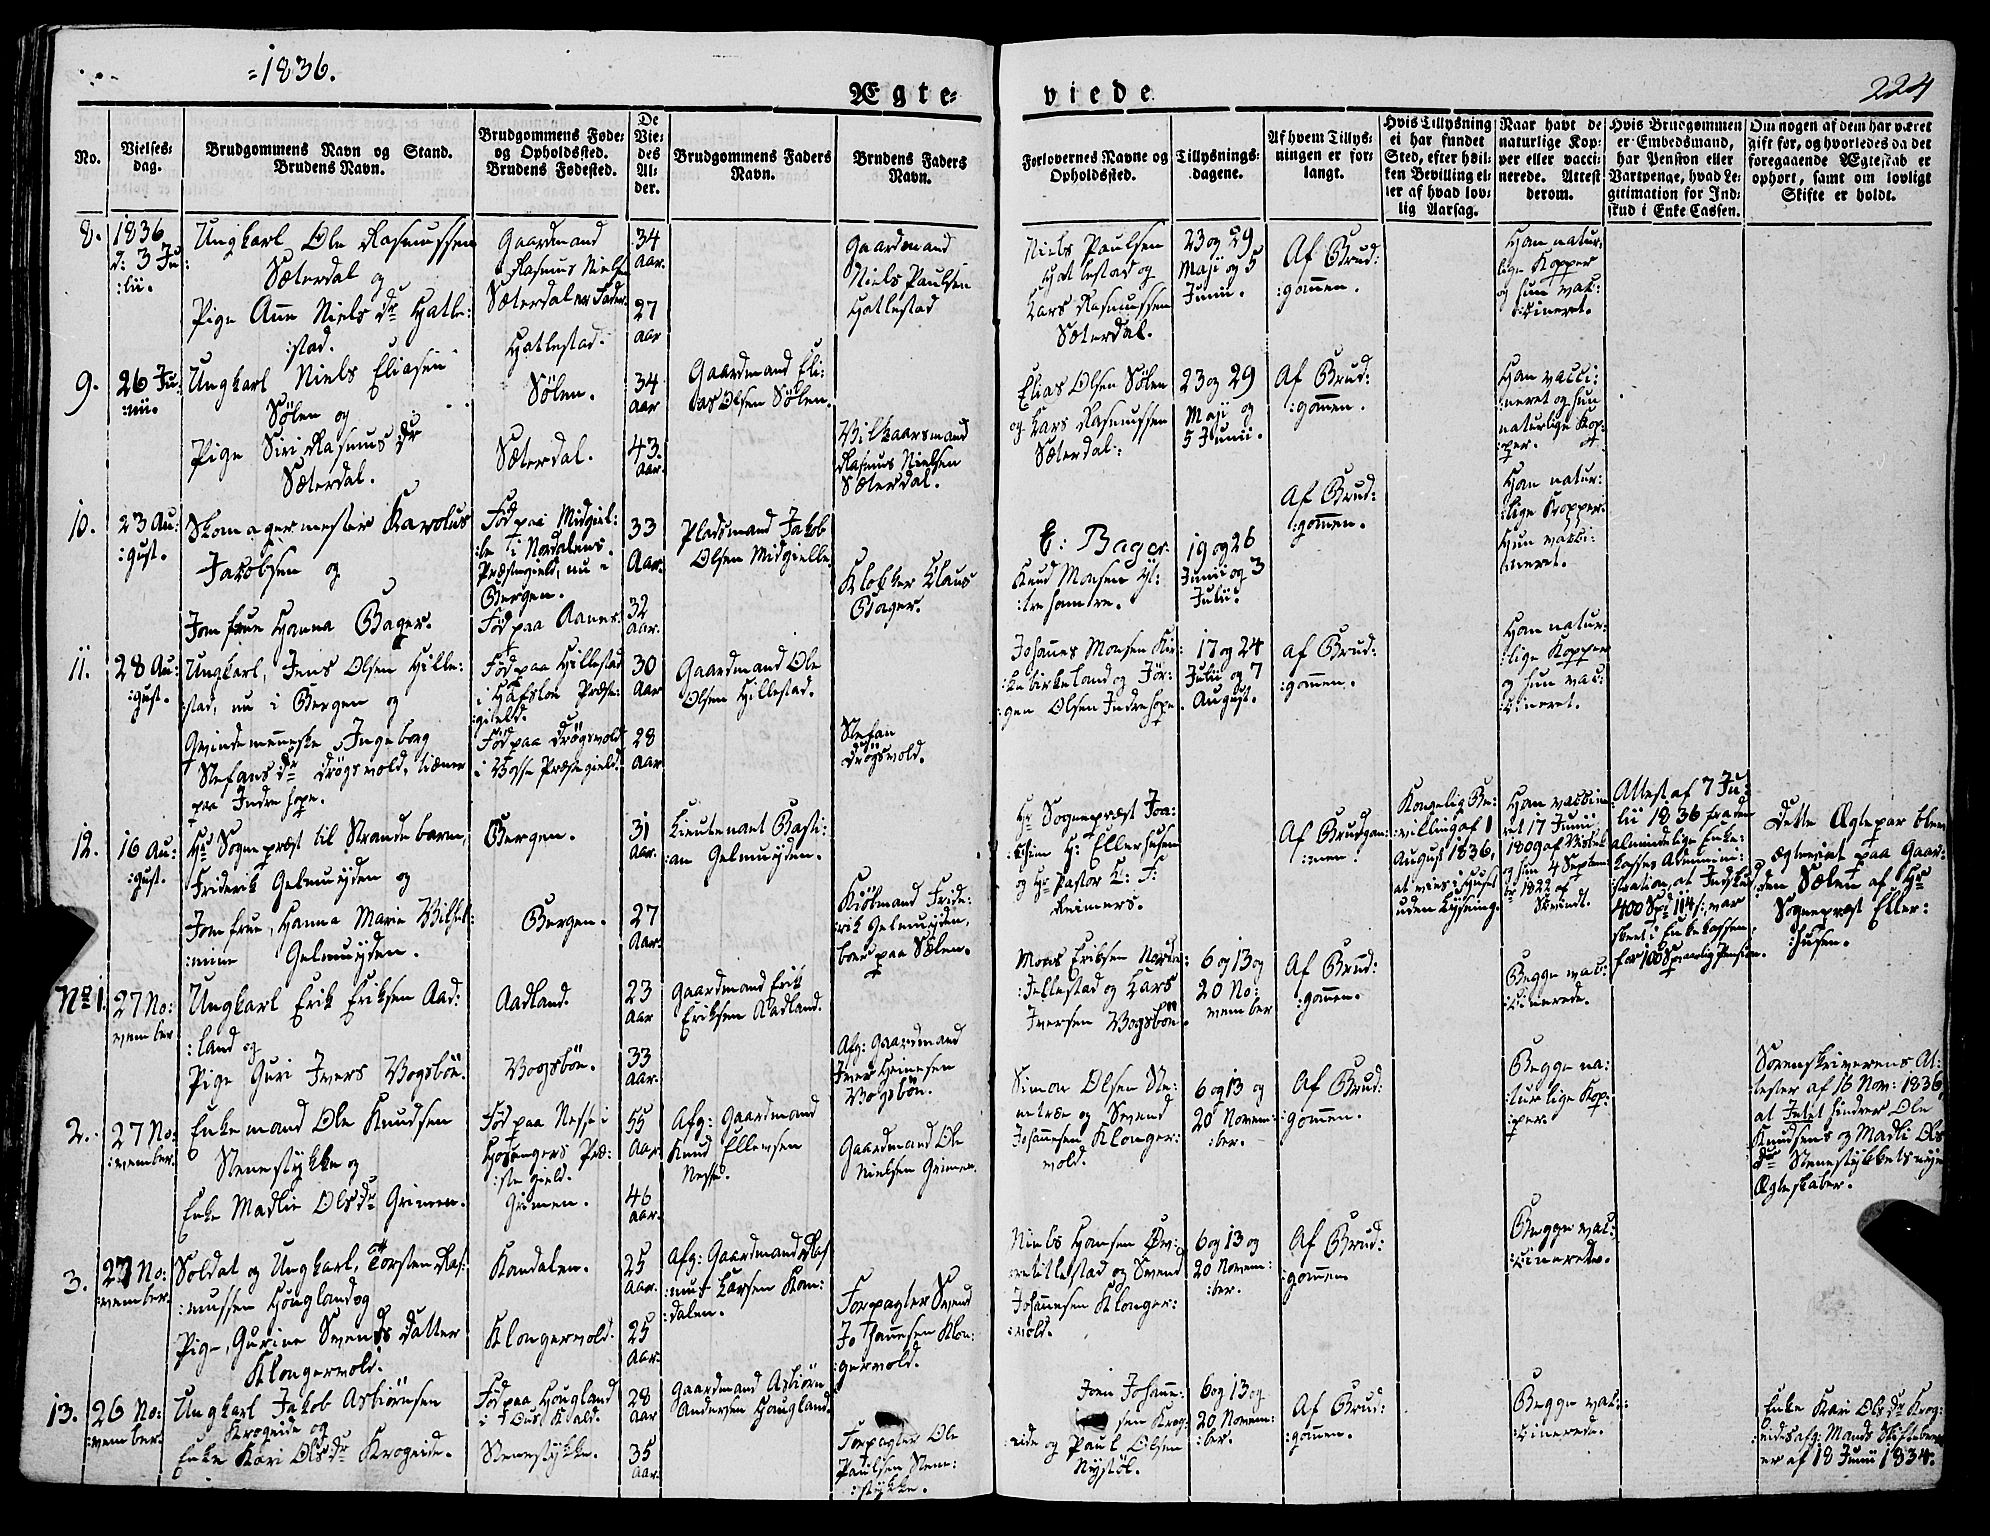 =1836.
224
Ægte=
viede
No.
Vielses-
dag.
Brudgommens Navn og Stand.
Brudens Navn.
Brudgommens Føde-
og Opholdssted.
Brudens Fødested.
De
Vie-
des
Al-
der.
Brudgommens Faders
Navn.
Brudens Faders
Navn.
Forlovernes Navne og
Opholdssted.
Tillysnings-
dagene.
Af hvem Tillys-
ningen er for-
langt.
Hvis Tillysning
ei har fundet
Sted, efter hvil-
ken Bevilling el-
ler af hvad lov-
lig Aarsag.
Naar havt de
naturlige Kop-
per eller vacci-
nerede. Attest
derom.
Hvis Brudgommen
er Embedsmand,
har Pension eller
Vartpenge, hvad Le-
gitimation for Ind-
skud i Enke Cassen.
Om nogen af dem har været
gift før, og hvorledes da det
foregaaende Ægteskab er
ophørt, samt om lovligt
Skifte er holdt.
8.
1836
d: 3 Ju
:lii.
Ungkarl Ole Rasmussen
Sæterdal og
Pige Anne Niels Dr Hatle:
:stad.
Gaardmand
Rasmus Nielsen
Sæterdal er Fader
Hatlestad.
34
aar.
27
aar
Gaardmand
Niels Paulsen
Hatlestad
Niels Paulsen
Hatlestad og
Lars Rasmussen
Sæterdal.
23 og 29
Maji og 5
Junii.
Af Brud:
:gommen.
Han natur:
:lige Kopper
og hun vac:
:cineret.
9.
26 Ju:
:nii.
Ungkarl Niels Eliasen
Sølen og
Pige Siri Rasmus Dr
Sæterdal.
Sølen.
Sæterdal.
34
aar
43.
aar.
Gaardmand Eli:
:as Olsen Sølen.
Vilkaarsmand
Rasmus Nielsen
Sæterdal.
Elias Olsen Sølen
og Lars Rasmussen
Sæterdal:
23 og 29
Maji og
5 Junii.
Af Brud:
:gommen.
Han vacci:
:neret og hun
naturlige Kop:
:per.
10.
23 Au:
:gust.
Skomagermester Karolus
Jakobsen og
Jomfrue Hanna Bager.
Fød paa Midgiel:
:le i Nordalens
Præstegield, nu i
Bergen.
Fød paa Aanes.
33
Aar.
32
aar.
Pladsmand Jakob
Olsen Midgielle.
Klokker Klaus
Bager.
C: Bager.
Knud Monsen Yt:
:trehamre.
19 og 26
Junii og 3
Julii.
Af Brud:
:gommen.
Han natur:
:lige Kopper.
Hun vacci:
:neret.
11.
28 Au:
:gust.
Ungkarl, Jens Olsen Hille:
:stad, nu i Bergen og
Qvindemenneske Ingeborg
Stefans Dr Drøgsvold, tiener
paa Indre Hope.
Fød paa Hillestad
i Hafsloe Præste:
:gield.
Fød paa Drøgsvold
i Vosse Præstegield.
30
Aar
28
aar
Gaardmand Ole
Olsen Hillestad.
Stefan
Drøgsvold.
Johannes Monsen Kir:
:kebirkeland og Jør:
:gen Olsen Indrehope
17 og 24
Julii og 7
August.
af Brud:
:gommen.
Han natur:
:lige Kopper
og hun vac:
:cineret.
12.
16 Au:
:gust.
Hr Sognepræst til Strandebarm,
Friderik Gelmuyden og
Jomfrue, Hanna Marie Wilhel:
:mine Gelmuyden.
Bergen.
Bergen.
31
aar.
27
Aar.
Lieutenant Basti:
:an Gelmuyden.
Kiöbmand Fride:
:rik Gelmuyden,
boer paa Sælen.
Hr Sognepræst Joa:
:chim H: Ellerhusen
og Hr Pastor C: F:
Reimers.
Af Brudgom:
:men.
Kongelig Be:
:villing af 1
August 1836,
at vies i Huset
uden Lysning.
Han vaccine
ret 17 Junii
1809 af
og hun 4 Septem
br 1822 af
Attest af 7 Ju:
lii 1836 fra den
almindelige Enke:
kasses Administ:
:stration, at Indskud
400 Spd 114 s: var
skeet i Enkekassen
for 100 Spd aarlig Pension.
Dette Ægtepar blev
ægteviet paa Gaar:
:den Sælen af Hr
Sognepræst Eller:
:husen.
No 1.
27 No:
vember
Ungkarl Erik Eriksen Aad:
:land og
Pige Guri Ivers Vogsbøe.
Aadland.
Vogsbøe.
23
Aar
33
aar.
Gaardmand Erik
Eriksen Aadland.
Afg: Gaardmand
Iver Heinesen
Vogsbøe.
Mons Eriksen Nordre:
:Jellestad og Lars
Iversen Vogsbøe.
6 og 13 og
20 No:
vember
Af Brud:
:gommen.
Begge vac:
:cinerede.
2.
27 No:
:vember.
Enkemand Ole Knudsen
Stenestykke og
Enke Madlie Ols Dr Grimen.
Fød paa Nesse i
Hosangers Præ:
:ste gield.
Grimen.
55
Aar
46
aar.
Afg: Gaardmand
Knud Ellensen
Nesse.
Gaardmand Ole
Nielsen Grimen.
Simon Olsen Ste:
og Svend
Johannesen Klonger:
vold.
6 og 13 og
20 Novem:
:ber.
Af Brud:
gommen.
Begge na:
:turlige Kop:
:per.
Sorenskriverens At:
:tester af 16 Nov: 1836
at Intet hindrer Ole
Knudsens og Madli Ols
Dr Stenestykkets nye
Ægteskaber.
3.
27 No:
:vember.
Soldat og Ungkarl, Torsten Ras:
:mussen Hougland og
Pige, Gurine Svends Datter
Klongervold.
Kandalen.
Klongervold.
25
Aar.
25
Aar.
Afg: Gaardmand Ras
mus Larsen Kan:
:dalen.
Forpagter Svend
Johannesen Klon:
:gervold.
Niels Hansen Øv:
:retitlestad og Svend
Johannesen Klonger:
:vold.
6 og 13 og
20 Novem:
:ber.
Af Brud:
:gommen
Begge vac:
:cinerede.
13.
26 No:
:vember.
Ungkarl Jakob Asbiörnsen
Krogeide og
Enke Kari Ols Dr Krogeide.
Fød paa Hougland
i Fous Skald.
Stenestykke.
28
aar
35
aar.
Gaardmand Asbiörn
Andersen Hougland.
Forpagter Ole
Paulsen Stene:
:stykke.
Joen Johanne:
sen Krog:
:eide og Paul Olsen
Nystøl.
6 og 13 og
20 Novem:
:ber.
Af Brud:
:gommen.
Begge vac:
:cinerede.
Enke Kari Ols Dr Krog:
:eides afg: Mands Skiftebrev
er af 18 Junii 1834.